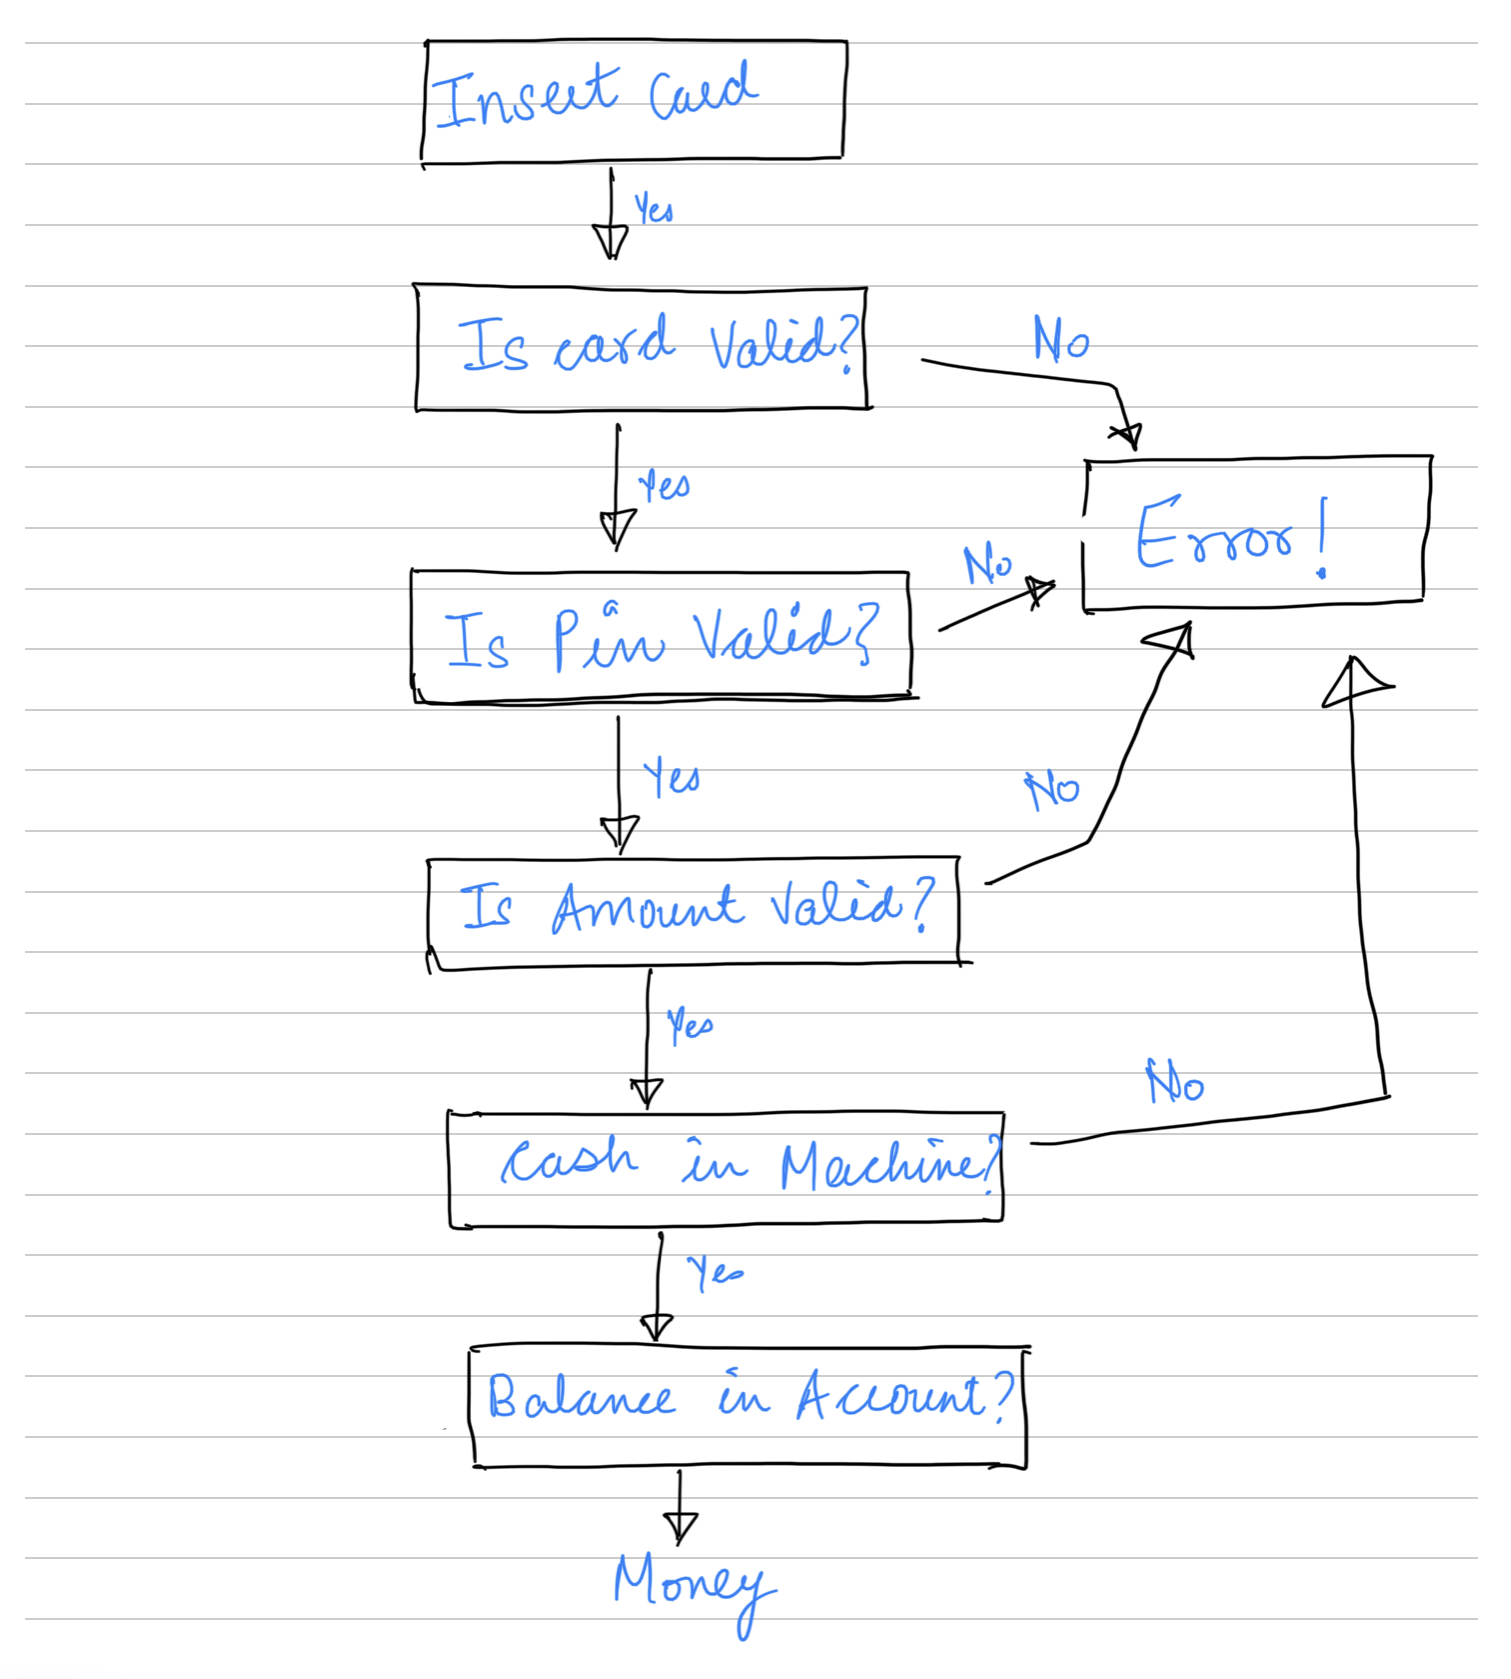 Insert Card
Yes
Is card Valid?
No
Yes
Error!
No
Is Pin Valid?
Yes
No
Is Amount Valid?
Yes
No
Cash in Machine?
Yes
Balance in Account?
Money